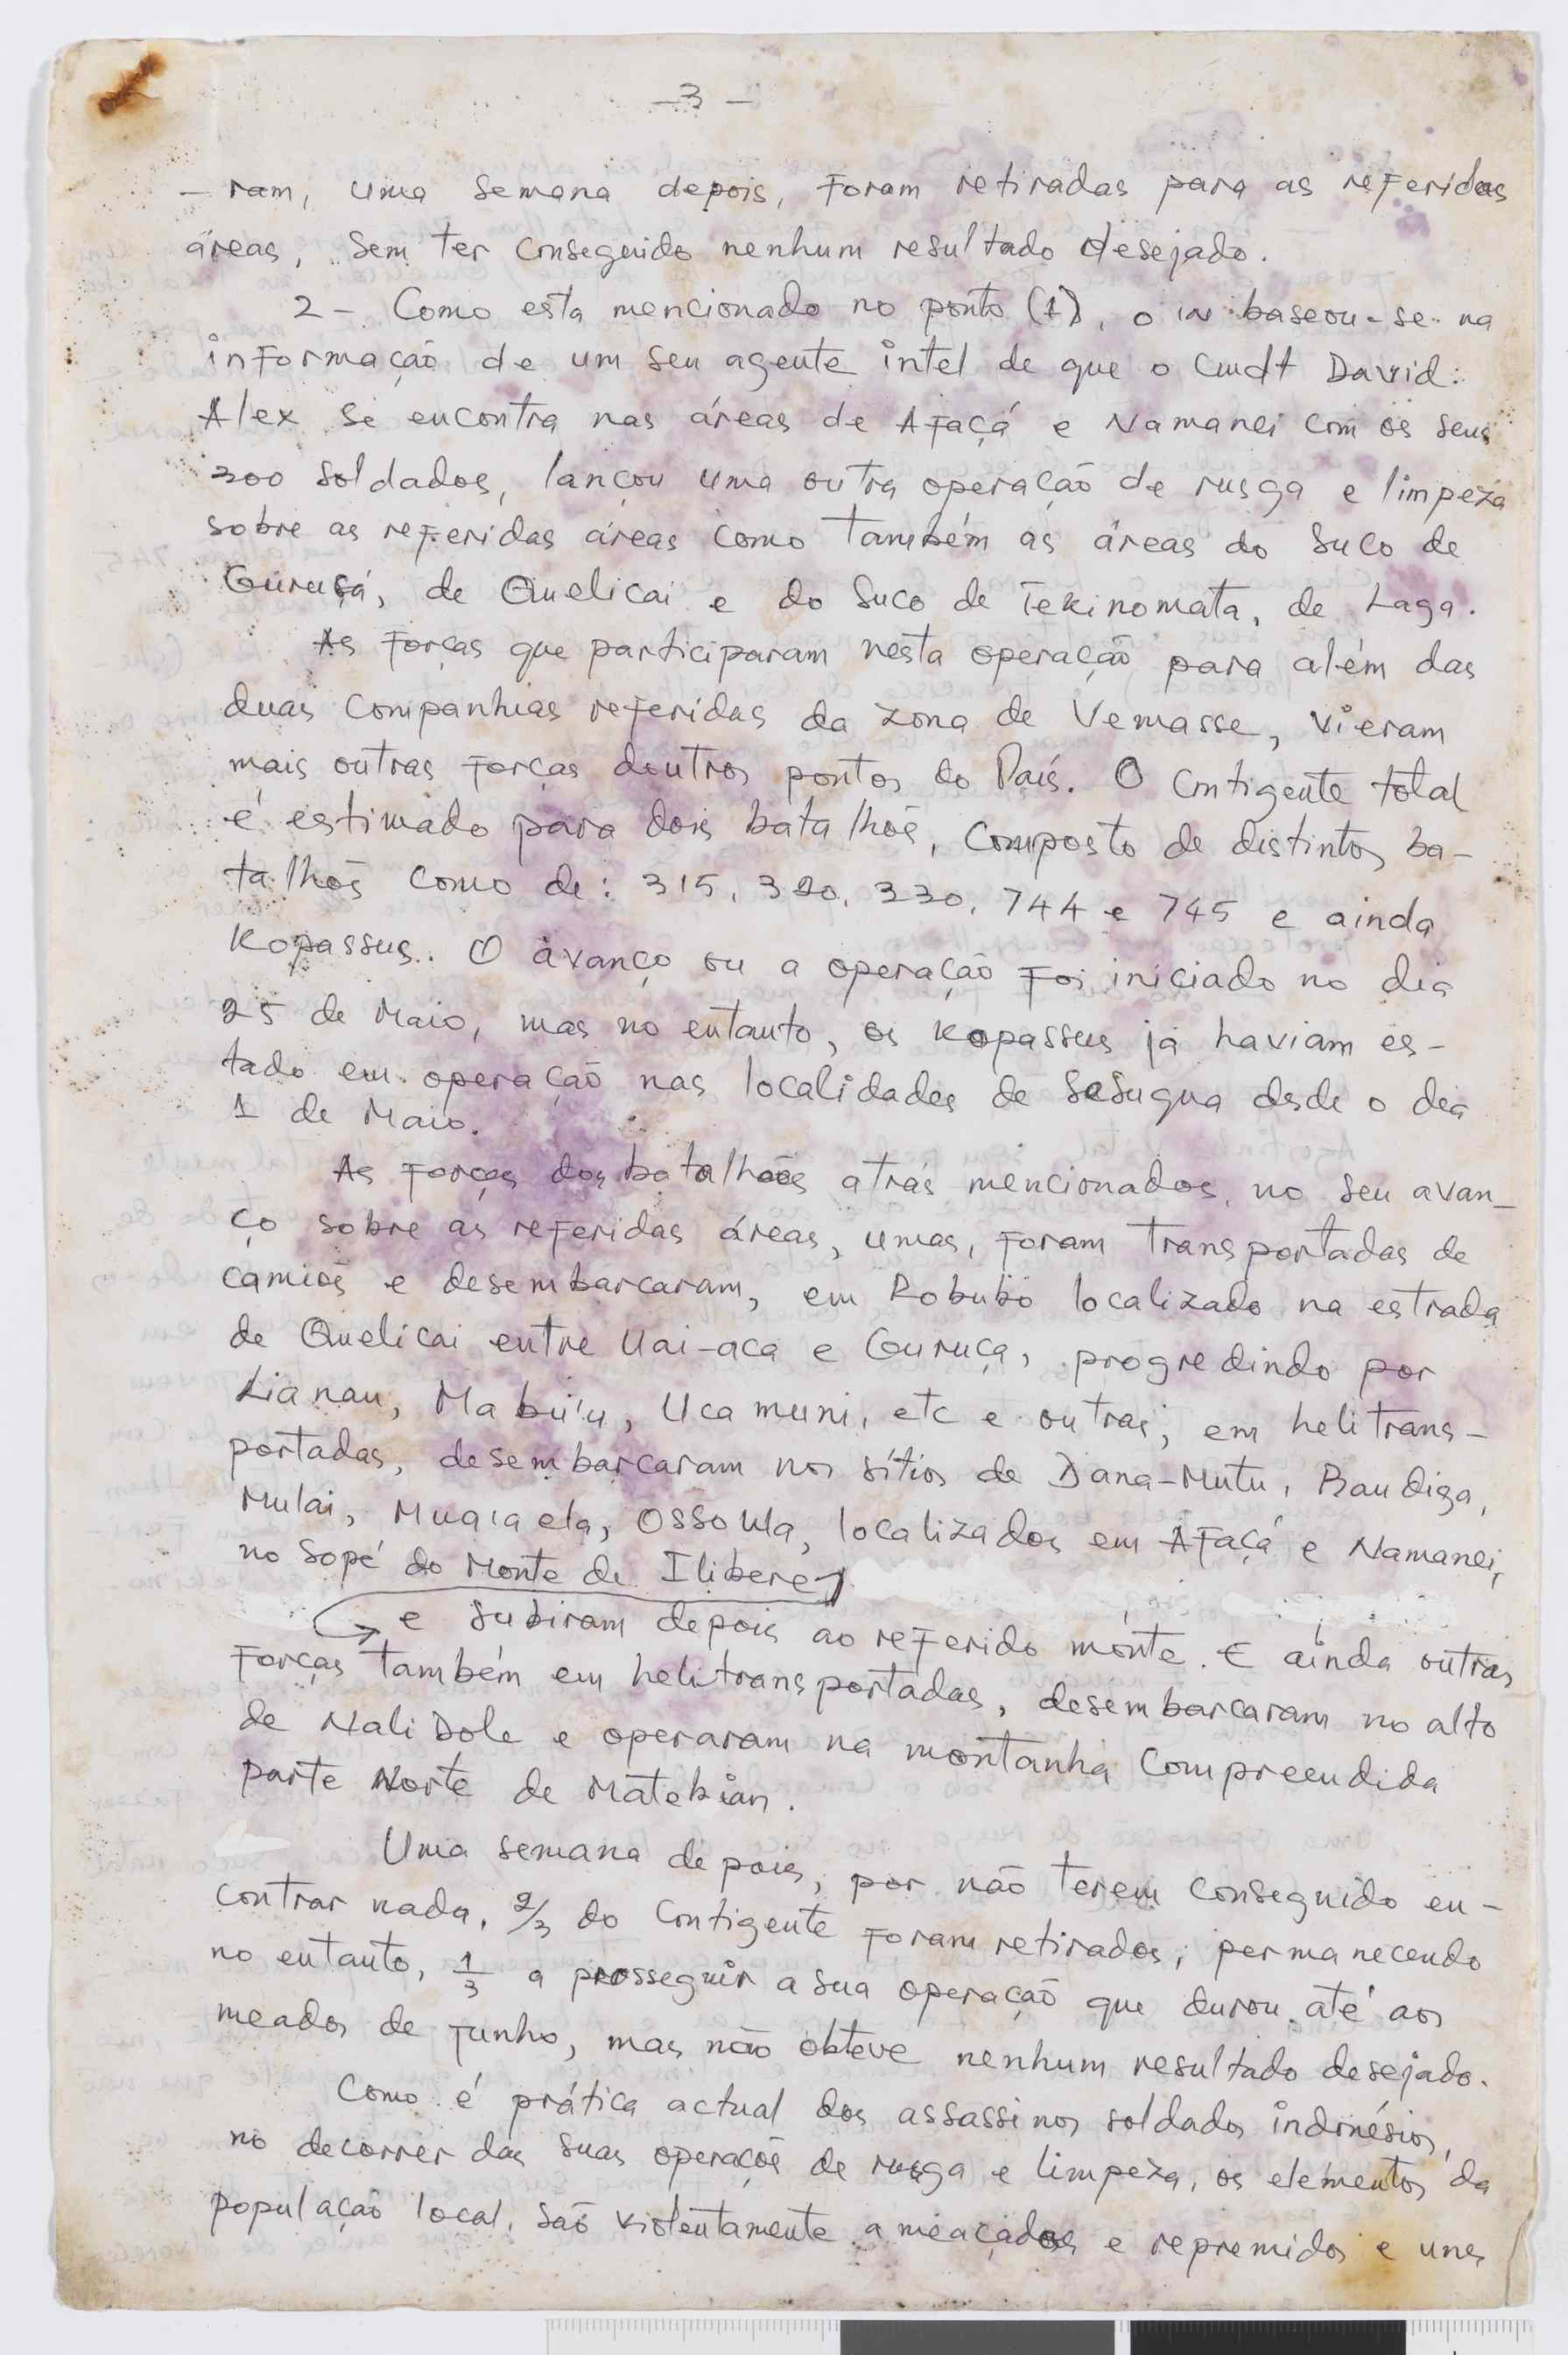 - 3 -
- ram, uma semana depois, foram retiradas para as referidas
áreas, sem ter conseguido nenhum resultado desejado.
2 - Como esta mencionado no ponto (1), o IN baseou-se na
informação de um seu agente intel de que o Cmdt David
Alex se encontra nas áreas de Afaçá e Namanei com os seus
300 soldados, lançou uma outra operação de rusga e limpeza
sobre as referidas áreas como também as áreas do Suco de
Guruçá, de Quelicai e do Suco de Tekinomata, de Laga.
As forças que participaram nesta operação para além das
duas companhias referidas da zona de Vemasse, vieram
mais outras forças doutros pontos do País. O contigente total
é estimado para dois batalhõs, composto de distintos ba-
talhõs como de: 315, 320, 330, 744 e 745 e ainda
Kopassus. O avanço ou a operação foi iniciado no dia
25 de Maio, mas no entanto, os Kopassus já haviam es-
tado em operação nas localidades de Sasugua desde o dia
1 de Maio.
As forças dos batalhões atrás mencionados, no seu avan-
ço sobre as referidas áreas, umas, foram transportadas de
camiõs e desembarcaram, em Robubo localizado na estrada
de Quelicai entre Uai-aca e Guruça, progredindo por
Lianau, Mabu'u, Ucamuni, etc e outras, em helitrans-
portadas, desembarcaram nos sítios de Dana-Mutu, Baudiga,
Mulai, Osso Ula, localizados em Afaçá e Namanei,
no sopé do Monte de Ilibere
e subiram depois ao referido monte. E ainda outras
forças também em helitransportadas, desembarcaram no alto
de Nali Dole e operaram na montanha compreendida
parte Norte de Matebian.
Uma semana depois, por não terem conseguido en-
contrar nada, 2/3 do contigente foram retirados, permanecendo
no entanto, 1/3 a prosseguir a sua operação que durou até aos
meados de Junho, mas não obteve nenhum resultado desejado.
Como é prática actual dos assassinos soldados indonésios,
no decorrer das suas operaçõs de rusga e limpeza, os elementos da
população local, são violentamente ameaçados e repremidos e uns